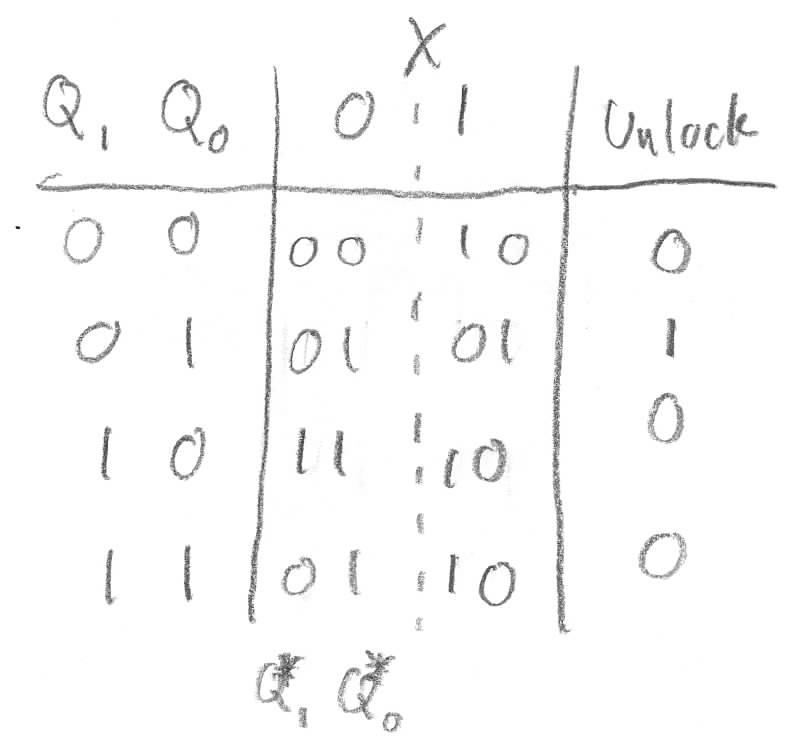 X
Q₁ Q₀ 0 1 Unlock
0 0 00 10 0
0 1 01 01 1
1 0 11 10 0
1 1 01 10 0
Q₁* Q₀*